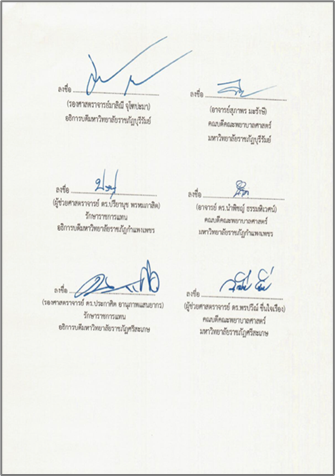 ลงชื่อ
(รองศาสตราจารย์มาลิณี จุโฑปะมา)
อธิการบดีมหาวิทยาลัยราชภัฏบุรีรัมย์
ลงชื่อ
(อาจารย์สุภาพร มะรังษี)
คณบดีคณะพยาบาลศาสตร์
มหาวิทยาลัยราชภัฏบุรีรัมย์
ลงชื่อ
(ผู้ช่วยศาสตราจารย์ ดร.ปรียานุช พรหมภาสิต)
รักษาราชการแทน
อธิการบดีมหาวิทยาลัยราชภัฏกำแพงเพชร
ลงชื่อ
(อาจารย์ ดร.นำพิชญ์ ธรรมหิเวศน์)
คณบดีคณะพยาบาลศาสตร์
มหาวิทยาลัยราชภัฏกำแพงเพชร
ลงชื่อ
(รองศาสตราจารย์ ดร.ประกาศิต อานุภาพแสนยากร)
รักษาราชการแทน
อธิการบดีมหาวิทยาลัยราชภัฏศรีสะเกษ
ลงชื่อ
(ผู้ช่วยศาสตราจารย์ ดร.พรปวีณ์ ชื่นใจเรือง)
คณบดีคณะพยาบาลศาสตร์
มหาวิทยาลัยราชภัฏศรีสะเกษ